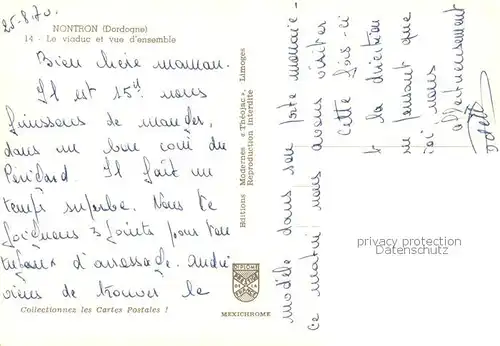 25.8.70.
NONTRON (Dordogne)
14 - Le viaduc et vue d'ensemble
Bien chère maman.
Il est 15H nous
finissons de manger,
dans un bon coin du
Périgord. Il fait un
temps superbe. Nous te
joignons 3 joints pour ton
tuyaux d'arrosage. André
viens de trouver le
modèle dans son porte monnaie -
Ce matin nous avons visités
cette fois-ci
la direction
en pensant que
ici nous
affectueusement
Editions Modernes « Théojac », Limoges
Reproduction interdite
MEXICHROME
Collectionnez les Cartes Postales !
privacy protection
Datenschutz